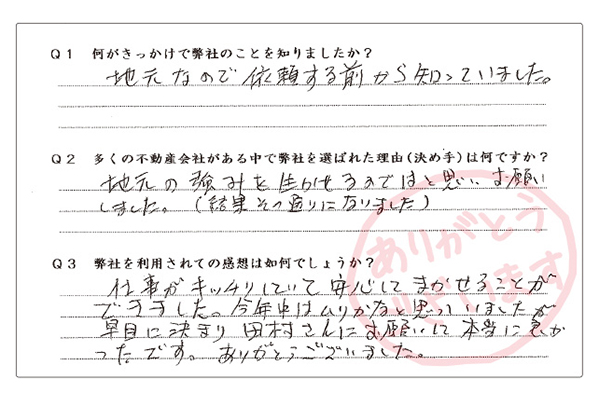 Q1 何がきっかけで弊社のことを知りましたか?
地元なので依頼する前から知っていました。
Q2 多くの不動産会社がある中で弊社を選ばれた理由(決め手)は何ですか?
地元の強みを生かせるのではと思い、お願い
しました。(結果その通りになりました)
Q3 弊社を利用されての感想は如何でしょうか?
仕事がキッチリしていて安心してまかせることが
できました。今年中はムリかなと思っていましたが
早目に決まり田村さんにお願いして本当に良か
ったです。ありがとうございました。
ありがとう
ございます